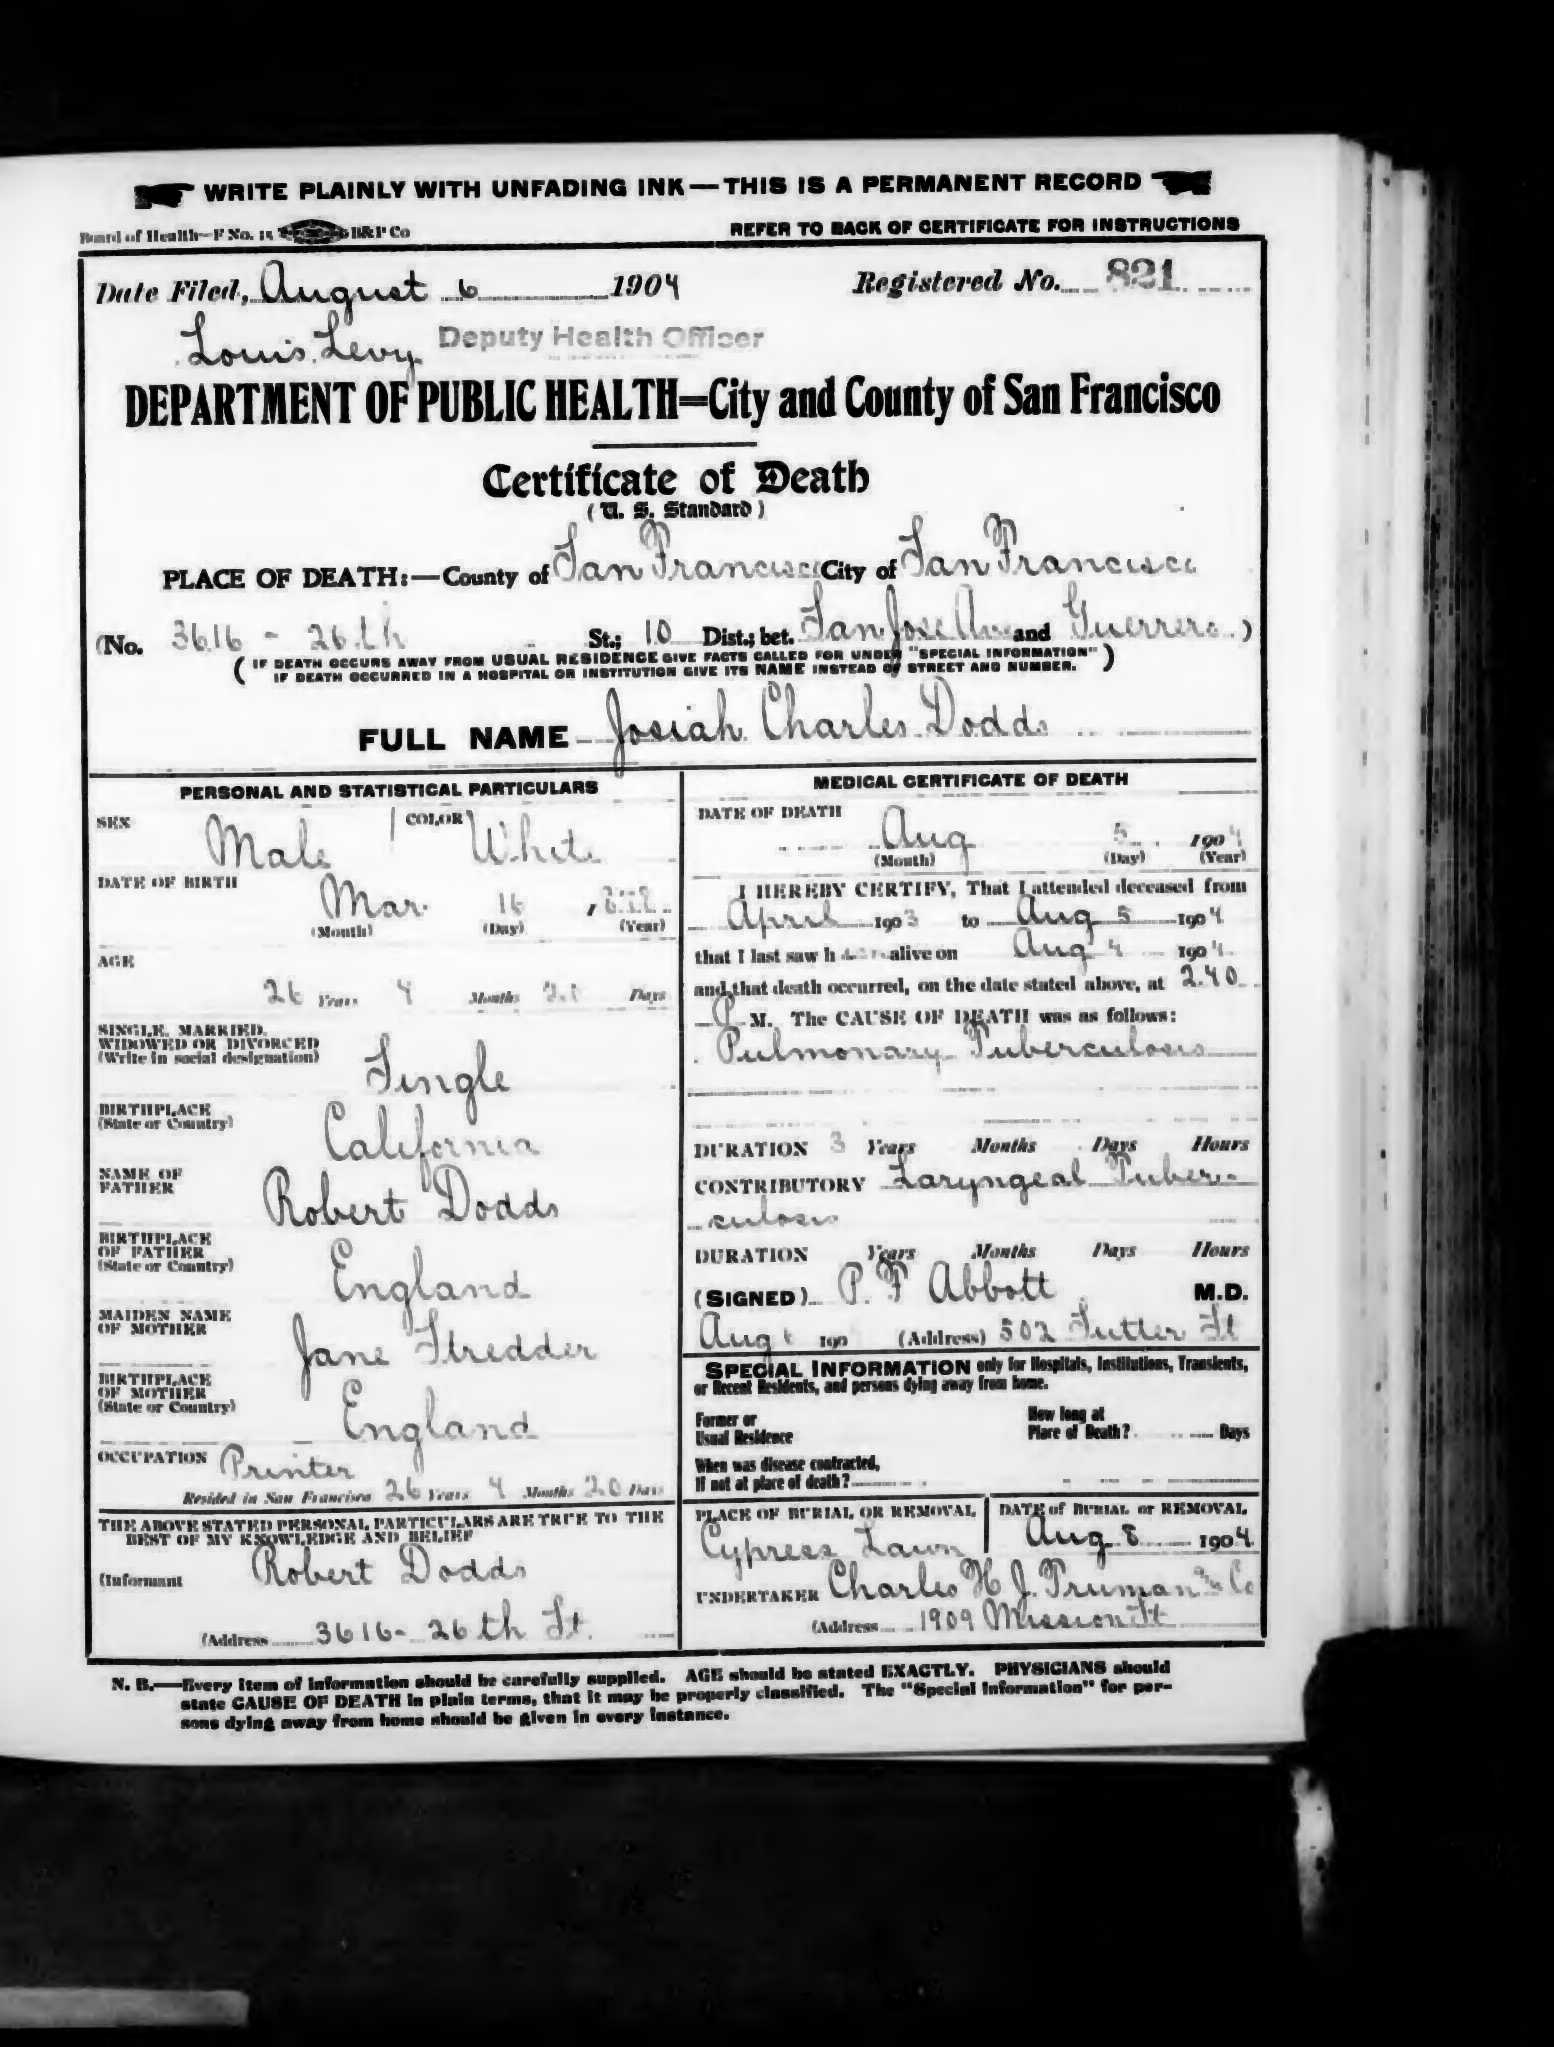 WRITE PLAINLY WITH UNFADING INK—THIS IS A PERMANENT RECORD
Board of Health—F No. 15 B&P Co
REFER TO BACK OF CERTIFICATE FOR INSTRUCTIONS
Date Filed, August 6 1904 Registered No. 821
Louis Levy Deputy Health Officer
DEPARTMENT OF PUBLIC HEALTH=City and County of San Francisco
Certificate of Death
(U. S. Standard)
PLACE OF DEATH:—County of San Francisco City of San Francisco
(No. 3616 - 26th St.; 10 Dist.; bet. San Jose Ave and Guerrero)
(IF DEATH OCCURS AWAY FROM USUAL RESIDENCE GIVE FACTS CALLED FOR UNDER "SPECIAL INFORMATION"
IF DEATH OCCURRED IN A HOSPITAL OR INSTITUTION GIVE ITS NAME INSTEAD OF STREET AND NUMBER.)
FULL NAME Josiah Charles Dodds
PERSONAL AND STATISTICAL PARTICULARS
SEX Male COLOR White
DATE OF BIRTH
Mar 16
(Month) (Day) (Year)
AGE
26 Years 4 Months 20 Days
SINGLE, MARRIED,
WIDOWED OR DIVORCED
(Write in social designation)
Single
BIRTHPLACE
(State or Country)
California
NAME OF
FATHER
Robert Dodds
BIRTHPLACE
OF FATHER
(State or Country)
England
MAIDEN NAME
OF MOTHER
Jane Stredder
BIRTHPLACE
OF MOTHER
(State or Country)
England
OCCUPATION Printer
Resided in San Francisco 26 Years 4 Months 20 Days
THE ABOVE STATED PERSONAL PARTICULARS ARE TRUE TO THE
BEST OF MY KNOWLEDGE AND BELIEF
(Informant Robert Dodds
(Address 3616- 26th St.
MEDICAL CERTIFICATE OF DEATH
DATE OF DEATH
Aug 5 1904
(Month) (Day) (Year)
I HEREBY CERTIFY, That I attended deceased from
April 1903 to Aug 5 1904
that I last saw h alive on Aug 4 1904
and that death occurred, on the date stated above, at 2.40
P M. The CAUSE OF DEATH was as follows:
Pulmonary Tuberculosis
DURATION 3 Years Months Days Hours
CONTRIBUTORY Laryngeal Tuber-
culosis
DURATION Years Months Days Hours
(SIGNED) P. F Abbott M.D.
Aug 6 190 (Address) 502 Sutter St
SPECIAL INFORMATION only for Hospitals, Institutions, Transients,
or Recent Residents, and persons dying away from home.
Former or
Usual Residence
How long at
Place of Death? Days
When was disease contracted,
If not at place of death?
PLACE OF BURIAL OR REMOVAL
Cypress Lawn
DATE of BURIAL or REMOVAL
Aug 8 1904
UNDERTAKER Charles H J. Truman & Co
(Address 1909 Mission St
N. B.—Every item of information should be carefully supplied. AGE should be stated EXACTLY. PHYSICIANS should
state CAUSE OF DEATH in plain terms, that it may be properly classified. The "Special Information" for per-
sons dying away from home should be given in every instance.